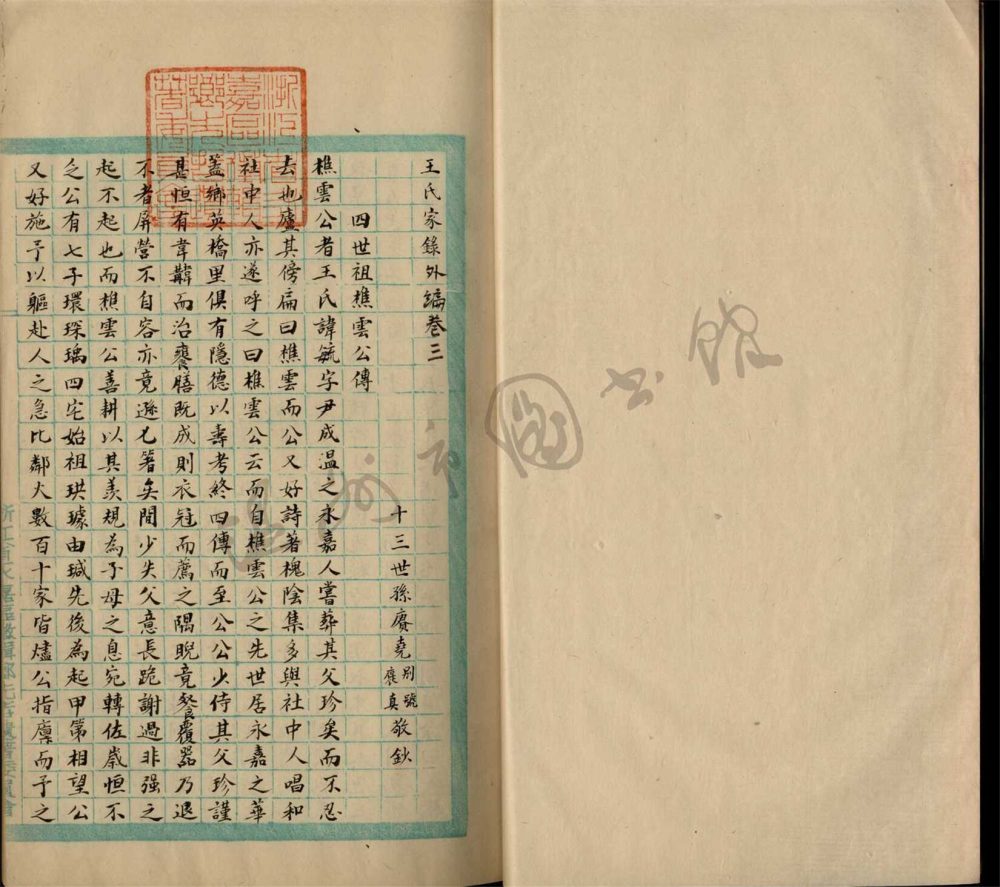 王氏家錄外編卷三
十三世孫賡堯別號賡真敬鈔
四世祖樵雲公傳
樵雲公者王氏諱毓字尹成溫之永嘉人嘗葬其父珍矣而不忍
去也廬其傍扁曰樵雲而公又好詩著槐陰集多與社中人唱和
社中人亦遂呼之曰樵雲公云而自樵雲公之先世居永嘉之華
蓋鄉英橋里俱有隱德以壽考終四傳而至公公少侍其父珍謹
甚恒有韋韝而治饔膳既成則衣冠而薦之隅睨竟餐覆器乃退
不者屏營不自容亦竟遜匕箸矣間少失父意長跪謝過非强之
起不起也而樵雲公善耕以其羨規為子母之息宛轉佐歲恒不
乏公有七子環琛瑀四宅始祖珙璩由瑊先後為起甲第相望公
又好施予以軀赴人之急比鄰火數百十家皆燼公指廩而予之
溫州市圖書館